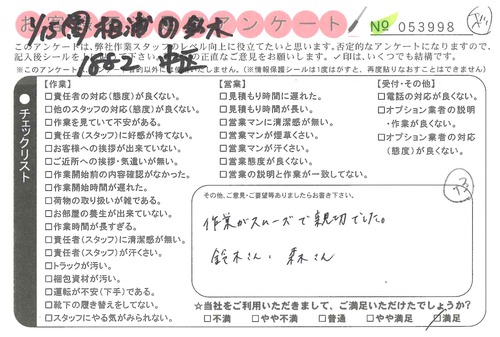 アンケート № 053998
このアンケートは、弊社作業スタッフのレベル向上に役立てたいと思います。否定的なアンケートになりますので、
記入後シールを
の正直なご意見をお願いします。✓印は、いくつでも結構です。
(※情報保護シールは1度はがすと、再度貼りなおすことはできません)
1882
チェックリスト
【作業】
□責任者の対応(態度)が良くない。
□他のスタッフの対応(態度)が良くない。
□作業を見ていて不安がある。
□責任者(スタッフ)に好感が持てない。
□お客様への挨拶が出来ていない。
□ご近所への挨拶・気遣いが無い。
□作業開始前の内容確認がなかった。
□作業開始時間が遅れた。
□荷物の取り扱いが雑である。
□お部屋の養生が出来ていない。
□作業時間が長すぎる。
□責任者(スタッフ)に清潔感が無い。
□責任者(スタッフ)が汗くさい。
□トラックが汚い。
□梱包資材が汚い。
□運転が不安(下手)である。
□靴下の履き替えをしてない。
□スタッフにやる気がみられない。
【営業】
□見積もり時間に遅れた。
□見積もり時間が長い。
□営業マンに清潔感が無い。
□営業マンが煙草くさい。
□営業マンが汗くさい。
□営業態度が良くない。
□営業の説明と作業が一致してない。
【受付・その他】
□電話の対応が良くない。
□オプション業者の説明
・作業が良くない。
□オプション業者の対応
(態度)が良くない。
その他、ご意見・ご要望等ありましたらお書き下さい。
作業がスムーズで親切でした。
鈴木さん、森さん
☆当社をご利用いただきまして、ご満足いただけたでしょうか?
□不満 □やや不満 □普通 □やや満足 □満足